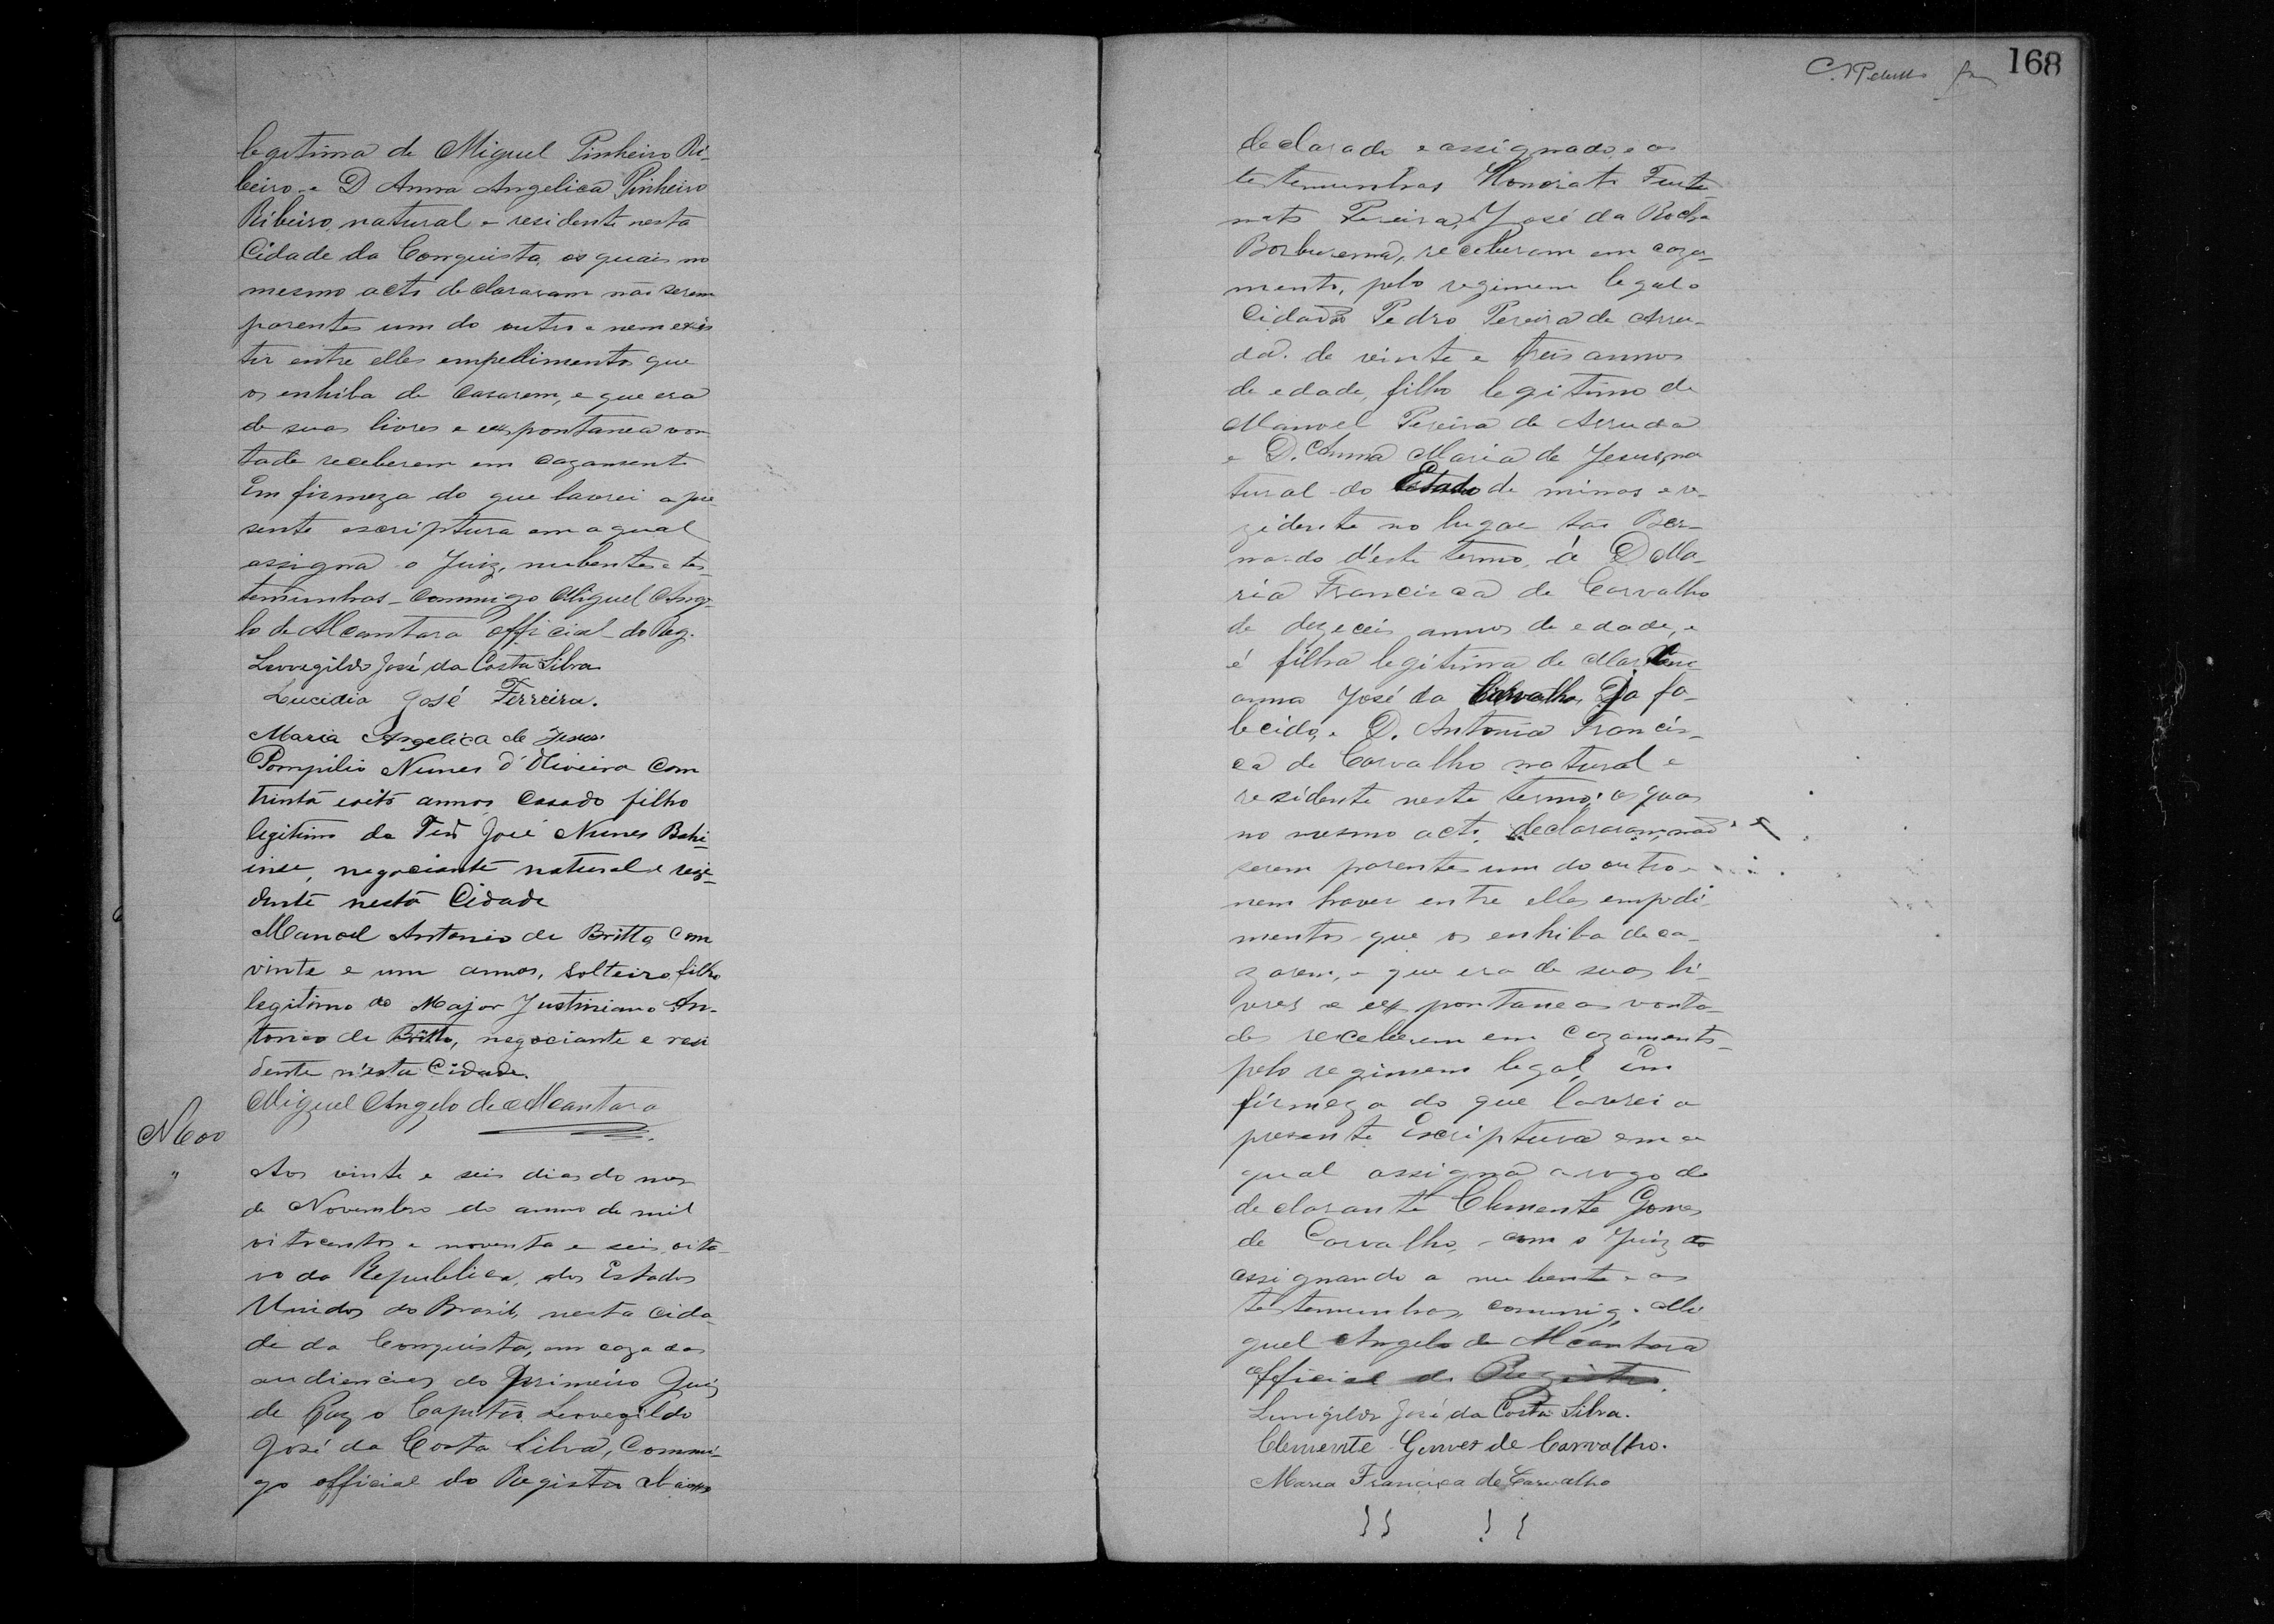 legitima de Miguel Pinheiro Ri-
beiro e D Anna Angelica Pinheiro
Ribeiro, natural e residente nesta
Cidade da Conquista, os quais no
mesmo acto declararam não serem
parentes um do outro e nem exis
tir entre elles empedimentos que
os enhiba de casarem, e que era
de suas livres e expontanea von
tade receberem em cazamento
Em firmeza do que lavrei a pre-
sente escriptura em a qual
assigna o Juiz, nubentes e tes-
temunhas commigo Miguel Ange-
lo de Alcantara official do Reg.
Leovegildo José da Costa Silva
Lucidio José Ferreira.
Maria Angelica de Jesus.
Pompilio Nunes d'Oliveira com
trinta e oito annos casado filho
legitimo de José Nunes Bahi-
ense, negociante natural e rezi-
dente nesta Cidade
Manoel Antonio de Britto com
vinte e um annos, solteiro, filho
legitimo do Major Justiniano An-
tonio de Britto, negociante e resi
dente n'esta Cidade.
Miguel Angelo de Alcantara
Aos vinte e seis dias do mes
de Novembro do anno de mil
oitocentos e noventa e seis, oita-
vo da Republica dos Estados
Unidos do Brasil, nesta cida-
de da Conquista, em caza das
audiencias do Primeiro Juiz
de Paz o Capitão Leovegildo
José da Costa Silva, Commi-
go official do Registro abaixo
168
declarado e assignado e as
testemunhas Honorato
Pereira, José da Rocha
Borburema, receberam em caza-
mento, pelo regimem legal o
Cidadão Pedro Pereira de Arru-
da. de vinte e treis annos
de edade, filho legitimo de
Manoel Pereira de Arruda
e D. Anna Maria de Jesus, na
tural do Estado de minas e re-
zidente no lugar São Ber-
nardo d'este termo, á D Ma-
ria Francisca de Carvalho
de dezeceis annos de edade, e
é filha legitima de
José de Carvalho, Ja fa-
lecido, e D. Antonia Francis-
ca de Carvalho natural e
residente neste termo; os quaes
no mesmo acto declararam, não
serem parentes um do outro e
nem haver entre elles empedi-
mentos que os enhiba de ca-
zarem, e que era de suas li-
vres e expontaneas vonta-
des receberem em cazamento
pelo regimem legal, Em
firmeza do que lavrei a
presente Escriptura em a
qual assigna a rogo do
declarante Clemente Gomes
de Carvalho, com o Juiz
assignando a nubente e as
testemunhas, commigo Mi-
guel Angelo de Alcantara
official do Registro.
Leovegildo José da Costa Silva.
Clemente Gomes de Carvalho.
Maria Francisca de Carvalho